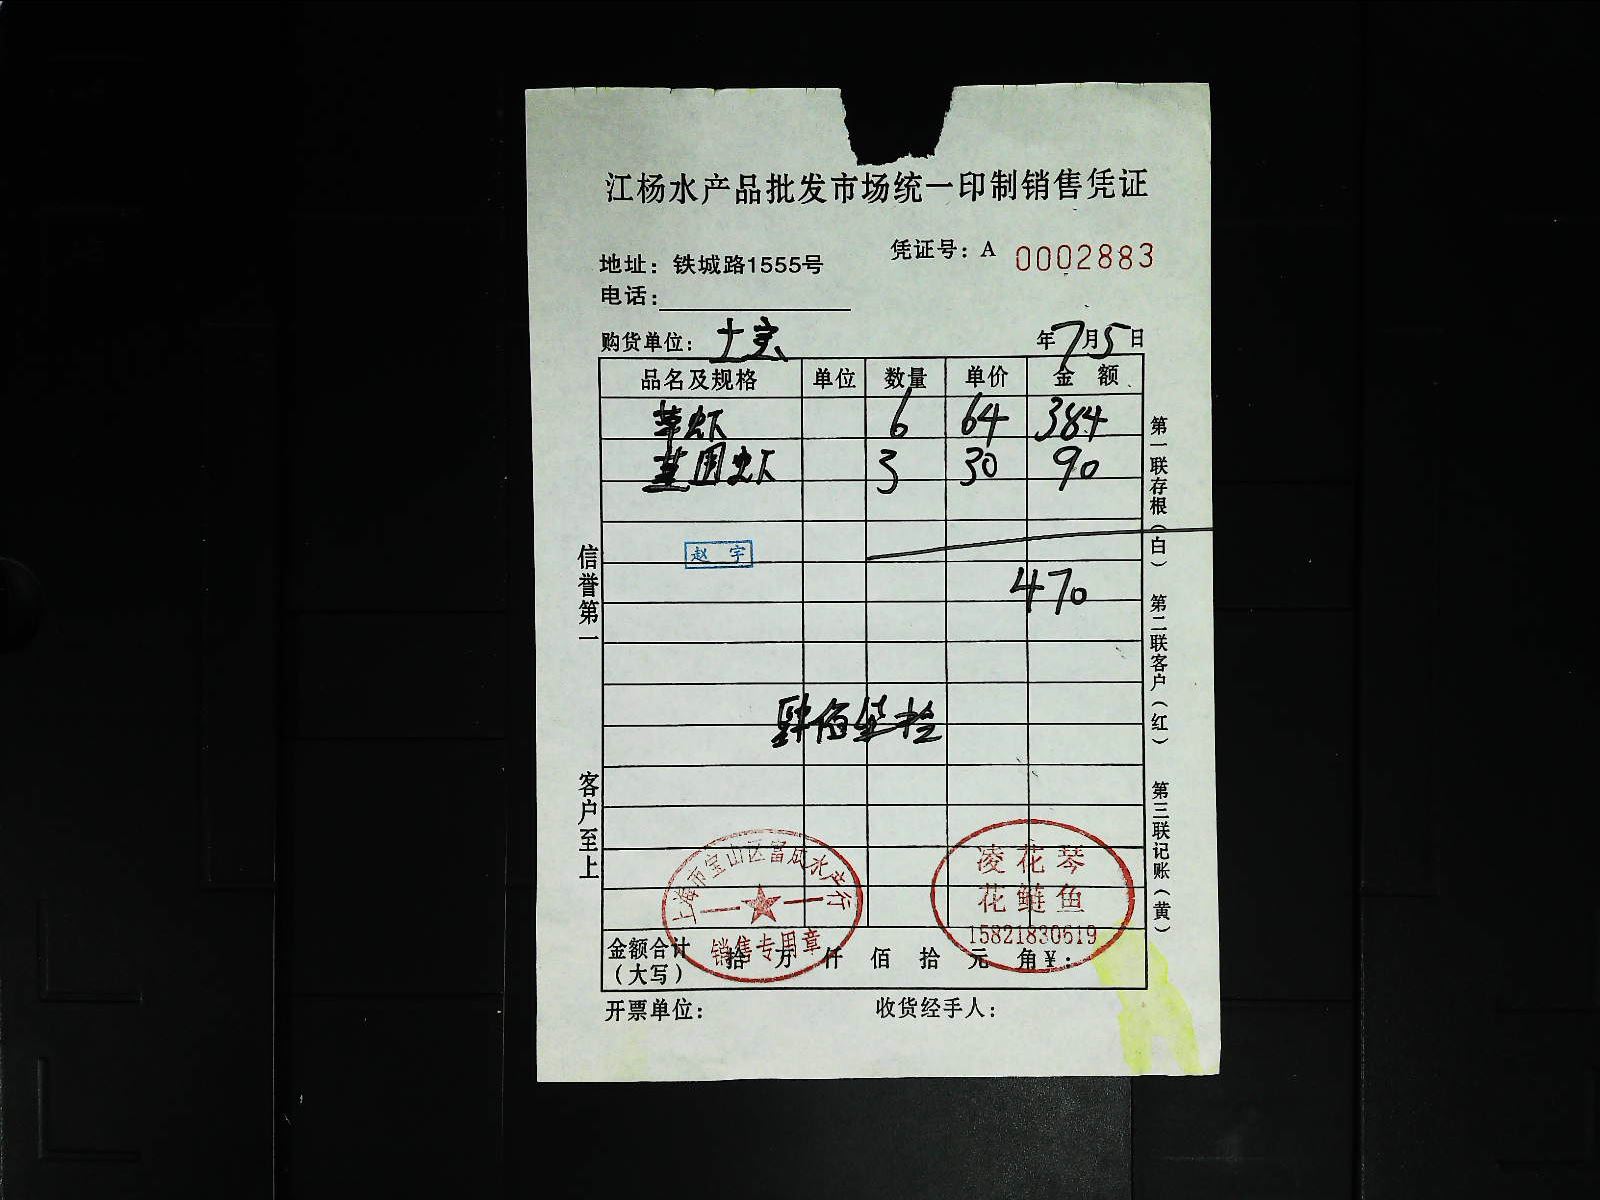 江杨水产品批发市场统一印制销售凭证
凭证号：A 0002883
地址：铁城路1555号
电话：
购货单位：土宝 年7月5日
品名及规格 单位 数量 单价 金额
草虾 6 64 384
基围虾 3 30 90
赵宇
470
肆佰柒拾
上海市宝山区富成水产行
销售专用章
凌花琴
花鲢鱼
15821830619
金额合计（大写） 拾 万 仟 佰 拾 元 角￥：
开票单位： 收货经手人：
信誉第一
客户至上
第一联存根（白） 第二联客户（红） 第三联记账（黄）